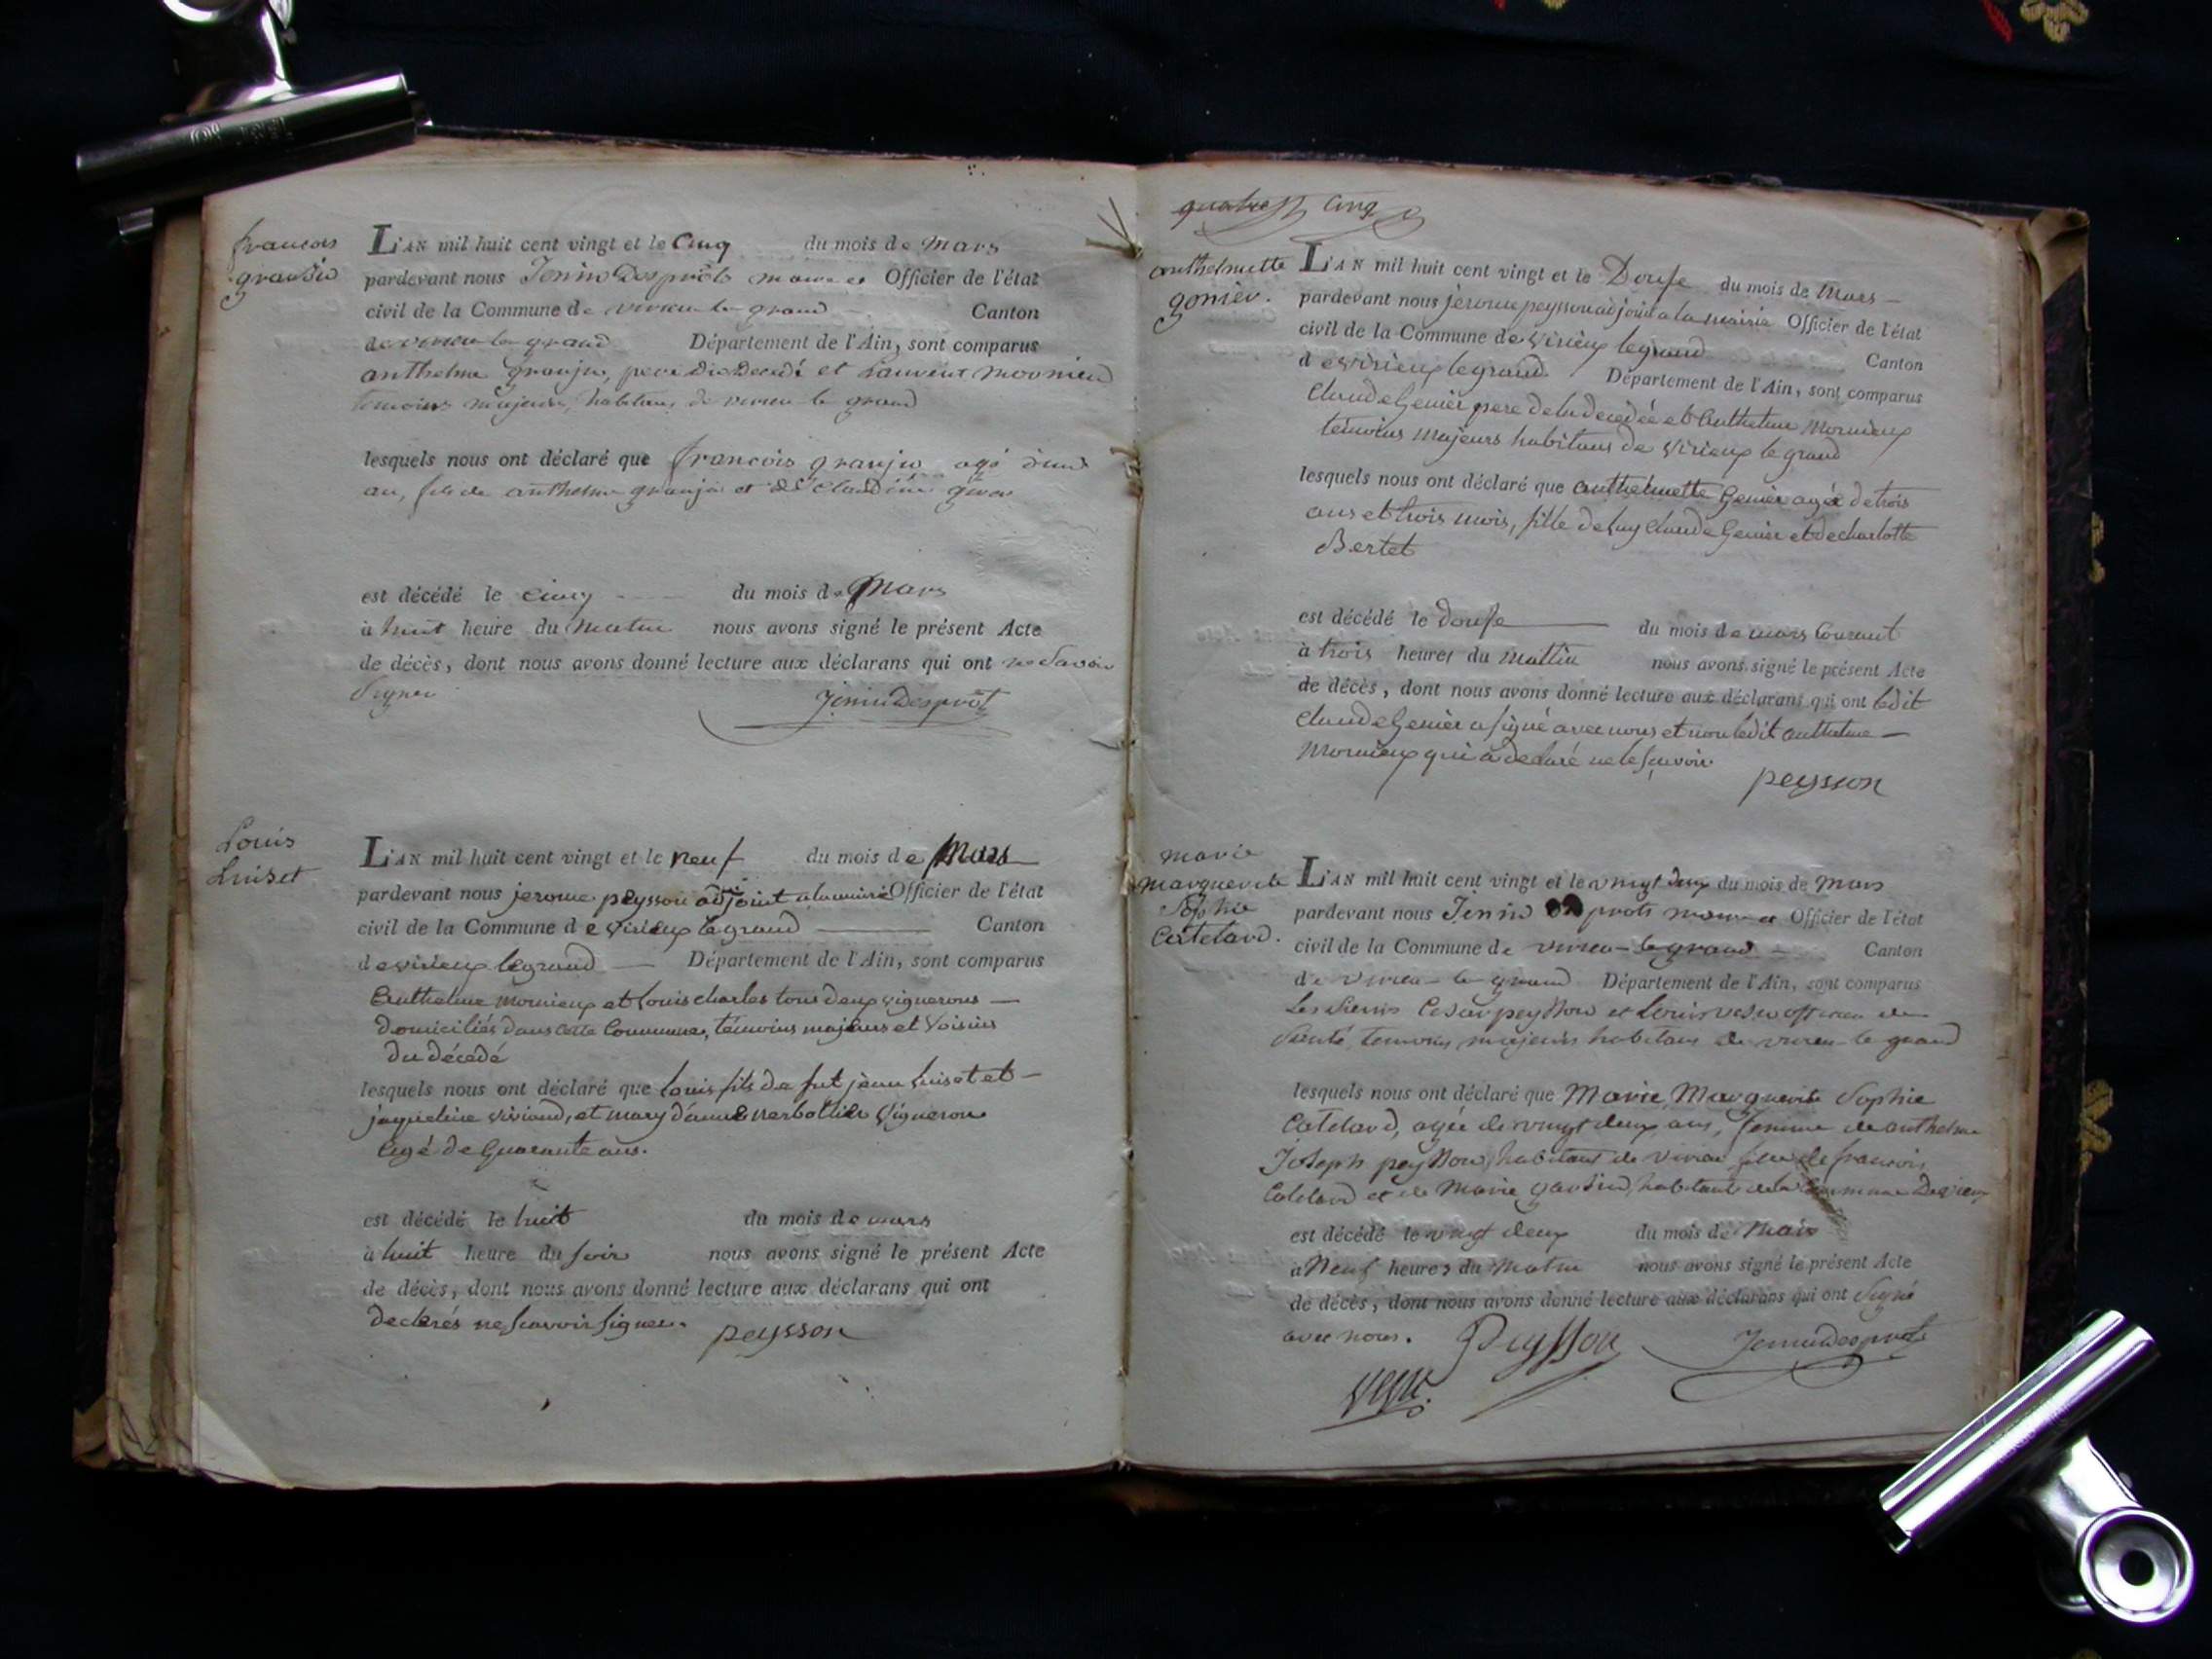 francois
granjiu
L'AN mil huit cent vingt et le Cinq du mois de Mars
pardevant nous Jenin Desprôts maire et Officier de l'état
civil de la Commune de virieu-le-grand Canton
de virieu le grand Département de l'Ain, sont comparus
anthelme granju, pere du décédé et Laurent mornieu
temoins majeurs, habitans de virieu le grand
lesquels nous ont déclaré que francois granju agé d'un
an, fils de anthelme granju et de Claudine
est décédé le cinq du mois de Mars
à huit heure du matin nous avons signé le présent Acte
de décès, dont nous avons donné lecture aux déclarans qui ont ne Savoir
Signer Jenin Desprôt
Louis
Luiset
L'AN mil huit cent vingt et le neuf du mois de Mars
pardevant nous jerome peysson adjoint a la mairie Officier de l'état
civil de la Commune de virieux le grand Canton
de virieux legrand Département de l'Ain, sont comparus
Anthelme mornieux et louis charles tous deux vignerons
domiciliés dans cette Commune, témoins majeurs et Voisins
du décedé
lesquels nous ont déclaré que louis fils de fut jean luiset et
jaqueline viviand, et mary d'anne verbottier Vigneron
Agé de Quarante ans.
est décédé le huit du mois de mars
à huit heure du soir nous avons signé le présent Acte
de décès, dont nous avons donné lecture aux déclarans qui ont
declarés ne scavoir signer. peysson
quatre Cinq
anthelmette
gonier.
L'AN mil huit cent vingt et le Douse du mois de Mars
pardevant nous jerome peysson adjoint a la mairie Officier de l'état
civil de la Commune de virieux legrand Canton
de virieux legrand Département de l'Ain, sont comparus
Claude Genier pere de la decedée et Anthelme Mornieux
témoins majeurs habitans de virieux le grand
lesquels nous ont déclaré que anthelmette Genier agée de trois
ans et trois mois, fille de suy Claude Genier et de charlotte
Bertet
est décédé le douse du mois de mars Courant
à trois heures du mattin nous avons signé le présent Acte
de décès, dont nous avons donné lecture aux déclarans qui ont ledit
Claude Genier a signé avec nous et non ledit anthelme
Mornieux qui a declaré ne le scavoir.
peysson
marie
marguerite
Sophie
Catelard.
L'AN mil huit cent vingt et le vingt deux du mois de Mars
pardevant nous Jenin Desprôts maire et Officier de l'état
civil de la Commune de virieu-le grand Canton
de virieu-le grand Département de l'Ain, sont comparus
Les Sieurs Cesar peysson et Louis officier de
Santé, temoins majeurs habitans de virieu-le grand
lesquels nous ont déclaré que Marie, Marguerite Sophie
Catelard, agée de vingt deux ans, femme de anthelme
Joseph peysson, habitant de virieu fille de francois
Catelard et de Marie habitants de la Commune de
est décédé le vingt deux du mois de Mars
à Neuf heures du Matin nous avons signé le présent Acte
de décès, dont nous avons donné lecture aux déclarans qui ont Signé
avec nous. Peysson Jenin Desprôts